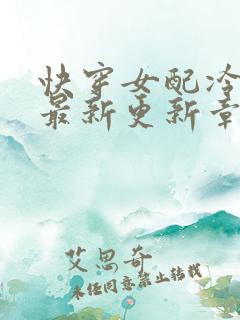 快穿女配冷
最新更新章
艾思奇
未经同意禁止转载